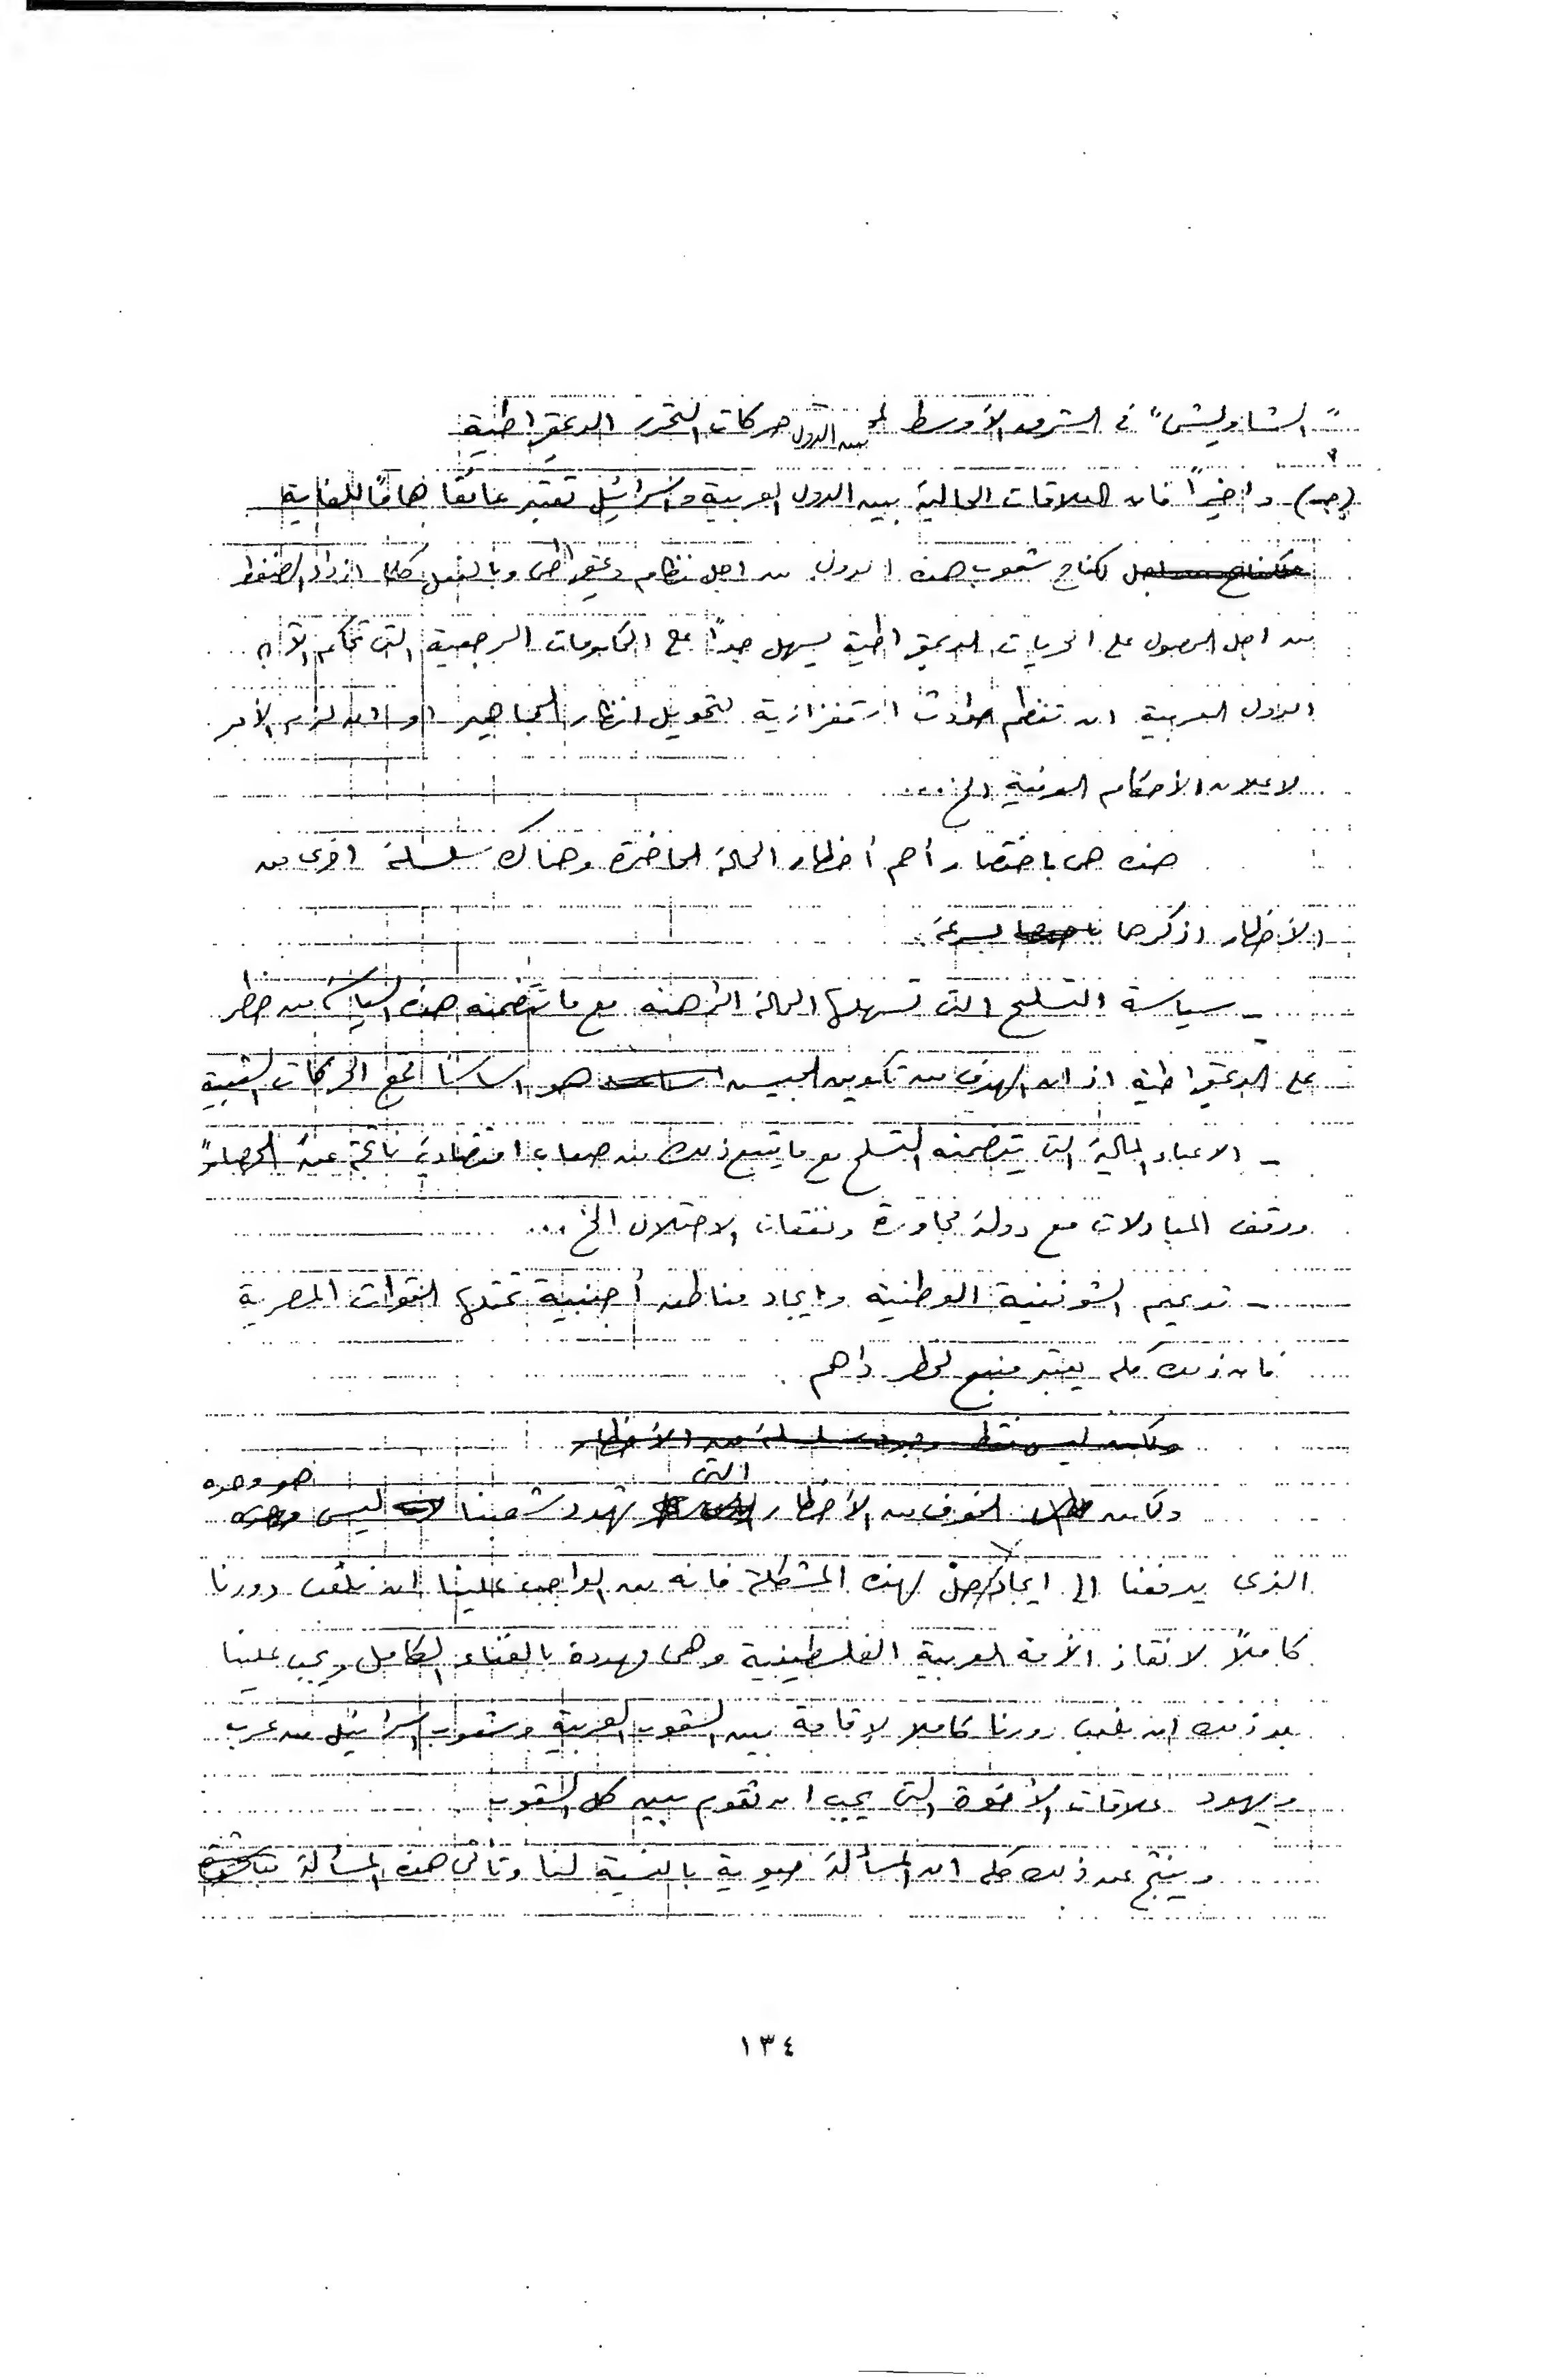 "الشاويش" فى الشرق الأوسط بين الدول حركات التحرر الديمقراطية
(جـ) واخيراً فان العلاقات الحالية بين الدول العربية واسرائيل تعتبر عائقا هامًا للغاية
لكفاح شعوب هذه الدول من اجل نظام ديمقراطى وبالفعل كلما ازداد الضغط
من اجل الحصول على الحريات الديمقراطية يسهل جداً على الحكومات الرجعية التى تحكم الآن
الدول العربية ان تنظم حوادث استفزازية لتحويل انظار الجماهير او ان لزم الأمر
لاعلان الأحكام العرفية الخ ...
هذه هى باختصار أهم أخطار الحالة الحاضرة وهناك سلسلة اخرى من
الأخطار اذكرها بسرعة.
- سياسة التسليح التى تسهلها الحالة الراهنة مع ما تتضمنه هذه السياسة من خطر
على الديمقراطية اذ ان الهدف من تكوين الجيش هو اساسًا قمع الحركات الشعبية
- الاعباء المالية التى يتضمنه التسلح مع ما يتبع ذلك من صعاب اقتصادية ناتجة عن
ووقف المبادلات مع دولة مجاورة ونفقات الاحتلال الخ ...
- تدعيم الشوفينية الوطنية وايجاد مناطق أجنبية تحتلها القوات المصرية
فان ذلك كله يعتبر منبع لخطر داهم .
ولكن ليس فقط وجود سلسلة من الأخطار
ولكن الخوف من الأخطار التى تهدد شعبنا ليس هو وحده
الذى يدفعنا الى ايجاد حل لهذه المشكلة فانه من الواجب علينا ان نلعب دورنا
كاملاً لانقاذ الأمة العربية الفلسطينية وهى مهددة بالفناء الكامل ويجب علينا
بعد ذلك ان نلعب دورنا كاملا لإقامة بين الشعوب العربية وشعوب اسرائيل من عرب
ويهود علاقات الأخوة التى يجب ان تقوم بين كل الشعوب
وينتج عن ذلك كله ان المسألة حيوية بالنسبة لنا وتأتى هذه المسألة مباشرة
١٣٤